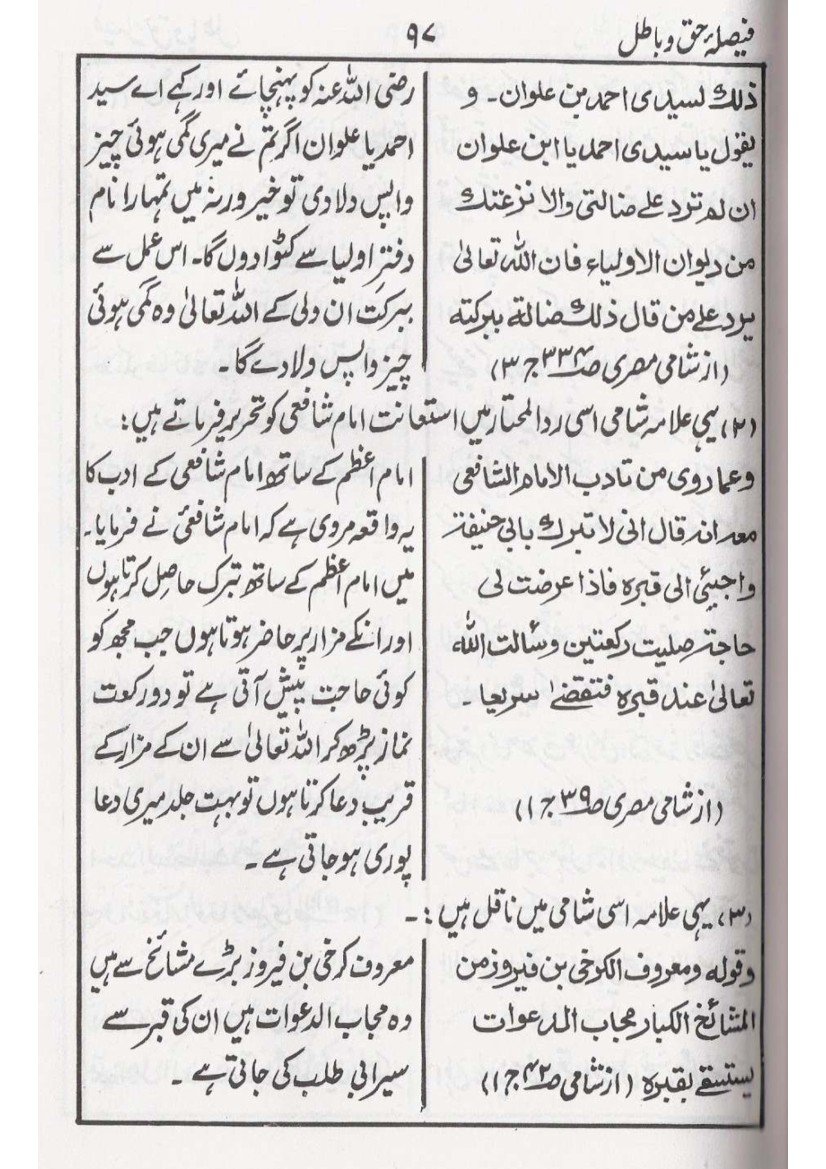 فیصلۂ حق و باطل
۹۷
ذلك لسیدی احمد بن علوان۔ و
یقول یا سیدی احمد یا ابن علوان
ان لم ترد علی ضالتی والا نزعتك
من دیوان الاولیاء فان اللہ تعالیٰ
یرد علی من قال ذلك ضالته ببرکته
(از شامی مصری ص۳۳۴ ج۳)
رضی اللہ عنہ کو پہنچائے اور کہے اے سید
احمد یا علوان اگر تم نے میری گمی ہوئی چیز
واپس دلا دی تو خیر ورنہ میں تمہارا نام
دفترِ اولیا سے کٹوا دوں گا۔ اس عمل سے
ببرکت ان ولی کے اللہ تعالیٰ وہ گمی ہوئی
چیز واپس ولا دے گا۔
(۲) یہی علامہ شامی اسی ردالمحتار میں استعانت امام شافعی کو تحریر فرماتے ہیں:
وعما روی من تادب الامام الشافعی
معه انه قال انی لا تبرك بابی حنیفة
واجیئی الی قبرہ فاذا عرضت لی
حاجة صلیت رکعتین وسالت اللہ
تعالیٰ عند قبرہ فتقضیٰ سریعا۔
(از شامی مصری ص۳۹ ج۱)
امام اعظم کے ساتھ امام شافعی کے ادب کا
یہ واقعہ مروی ہے کہ امام شافعیؒ نے فرمایا۔
میں امام اعظم کے ساتھ تبرک حاصل کرتا ہوں
اور انکے مزار پر حاضر ہوتا ہوں جب مجھ کو
کوئی حاجت پیش آتی ہے تو دو رکعت
نماز پڑھ کر اللہ تعالیٰ سے ان کے مزار کے
قریب دعا کرتا ہوں تو بہت جلد میری دعا
پوری ہو جاتی ہے۔
(۳) یہی علامہ اسی شامی میں ناقل ہیں:۔
وقوله ومعروف الکرخی بن فیروز من
المشائخ الکبار مجاب الدعوات
یستسقی بقبرہ (از شامی ص۴۲ ج۱)
معروف کرخی بن فیروز بڑے مشائخ سے ہیں
وہ مجاب الدعوات ہیں ان کی قبر سے
سیرابی طلب کی جاتی ہے۔